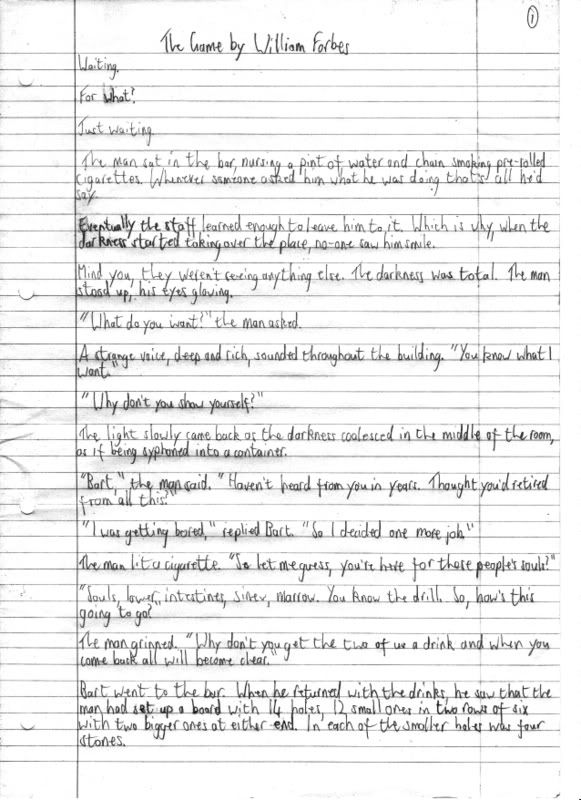 1
The Game by William Forbes
Waiting.
For what?
Just waiting.
The man sat in the bar, nursing a pint of water and chain smoking pre-rolled
cigarettes. Whenever someone asked him what he was doing that's all he'd
say.
Eventually the staff learned enough to leave him to it. Which is why, when the
darkness started taking over the place, no-one saw him smile.
Mind you, they weren't seeing anything else. The darkness was total. The man
stood up, his eyes glowing.
"What do you want?" the man asked.
A strange voice, deep and rich, sounded throughout the building. "You know what I
want."
"Why don't you show yourself?"
The light slowly came back as the darkness coalesced in the middle of the room,
as if being syphoned into a container.
"Bart," the man said. "Haven't heard from you in years. Thought you'd retired
from all this."
"I was getting bored," replied Bart. "So I decided one more job."
The man lit a cigarette. "So let me guess, you're here for these people's souls?"
"Souls, lower intestines, sinew, marrow. You know the drill. So, how's this
going to go?
The man grinned. "Why don't you get the two of us a drink and when you
come back all will become clear."
Bart went to the bar. When he returned with the drinks, he saw that the
man had set up a board with 14 holes, 12 small ones in two rows of six
with two bigger ones at either end. In each of the smaller holes was four
stones.